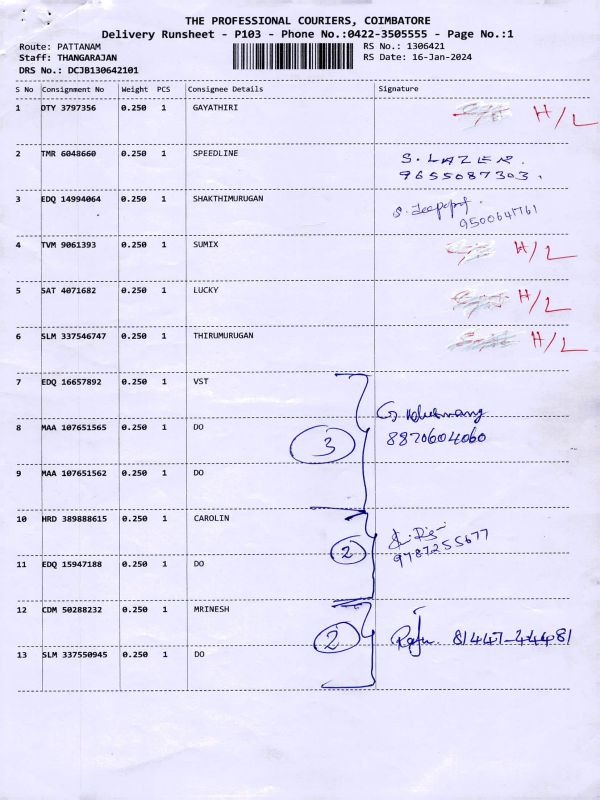 THE PROFESSIONAL COURIERS, COIMBATORE
Delivery Runsheet - P103 - Phone No.:0422-3505555 - Page No.:1
Route: PATTANAM RS No.: 1306421
Staff: THANGARAJAN RS Date: 16-Jan-2024
DRS No.: DCJB130642101
S No Consignment No Weight PCS Consignee Details Signature
1 OTY 3797356 0.250 1 GAYATHIRI H/L
2 TMR 6048660 0.250 1 SPEEDLINE S. LAZER.
9655087303.
3 EDQ 14994064 0.250 1 SHAKTHIMURUGAN
9500641761
4 TVM 9061393 0.250 1 SUMIX H/L
5 SAT 4071682 0.250 1 LUCKY H/L
6 SLM 337546747 0.250 1 THIRUMURUGAN H/L
7 EDQ 16657892 0.250 1 VST
8 MAA 107651565 0.250 1 DO 3 8870604060
9 MAA 107651562 0.250 1 DO
10 HRD 389888615 0.250 1 CAROLIN
2 9787255677
11 EDQ 15947188 0.250 1 DO
12 CDM 50288232 0.250 1 MRINESH
2 Raju 81447-44481
13 SLM 337550945 0.250 1 DO